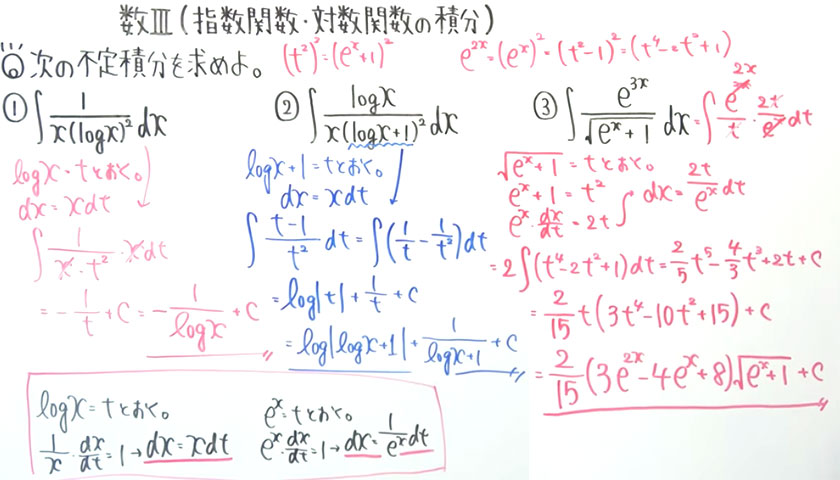 数Ⅲ(指数関数・対数関数の積分)
次の不定積分を求めよ。 (t²)²=(eˣ+1)² e²ˣ=(eˣ)²=(t²-1)²=(t⁴-2t²+1)
① ∫ 1/(x(logx)²) dx
logx=tとおく。
dx=xdt
∫ 1/(x・t²)・xdt
=-1/t+C=-1/logx+C
② ∫ logx/(x(logx+1)²) dx
logx+1=tとおく。
dx=xdt
∫ (t-1)/t² dt=∫(1/t-1/t²)dt
=log|t|+1/t+C
=log|logx+1|+1/(logx+1)+C
③ ∫ e³ˣ/√(eˣ+1) dx=∫ e²ˣ/t・2t/eˣ dt
√(eˣ+1)=tとおく。
eˣ+1=t²
eˣ・dx/dt=2t dx=2t/eˣ dt
=2∫(t⁴-2t²+1)dt=2/5t⁵-4/3t³+2t+C
=2/15t(3t⁴-10t²+15)+C
=2/15(3e²ˣ-4eˣ+8)√(eˣ+1)+C
logx=tとおく。
1/x・dx/dt=1→dx=xdt
eˣ=tとおく。
eˣ・dx/dt=1→dx=1/eˣ dt